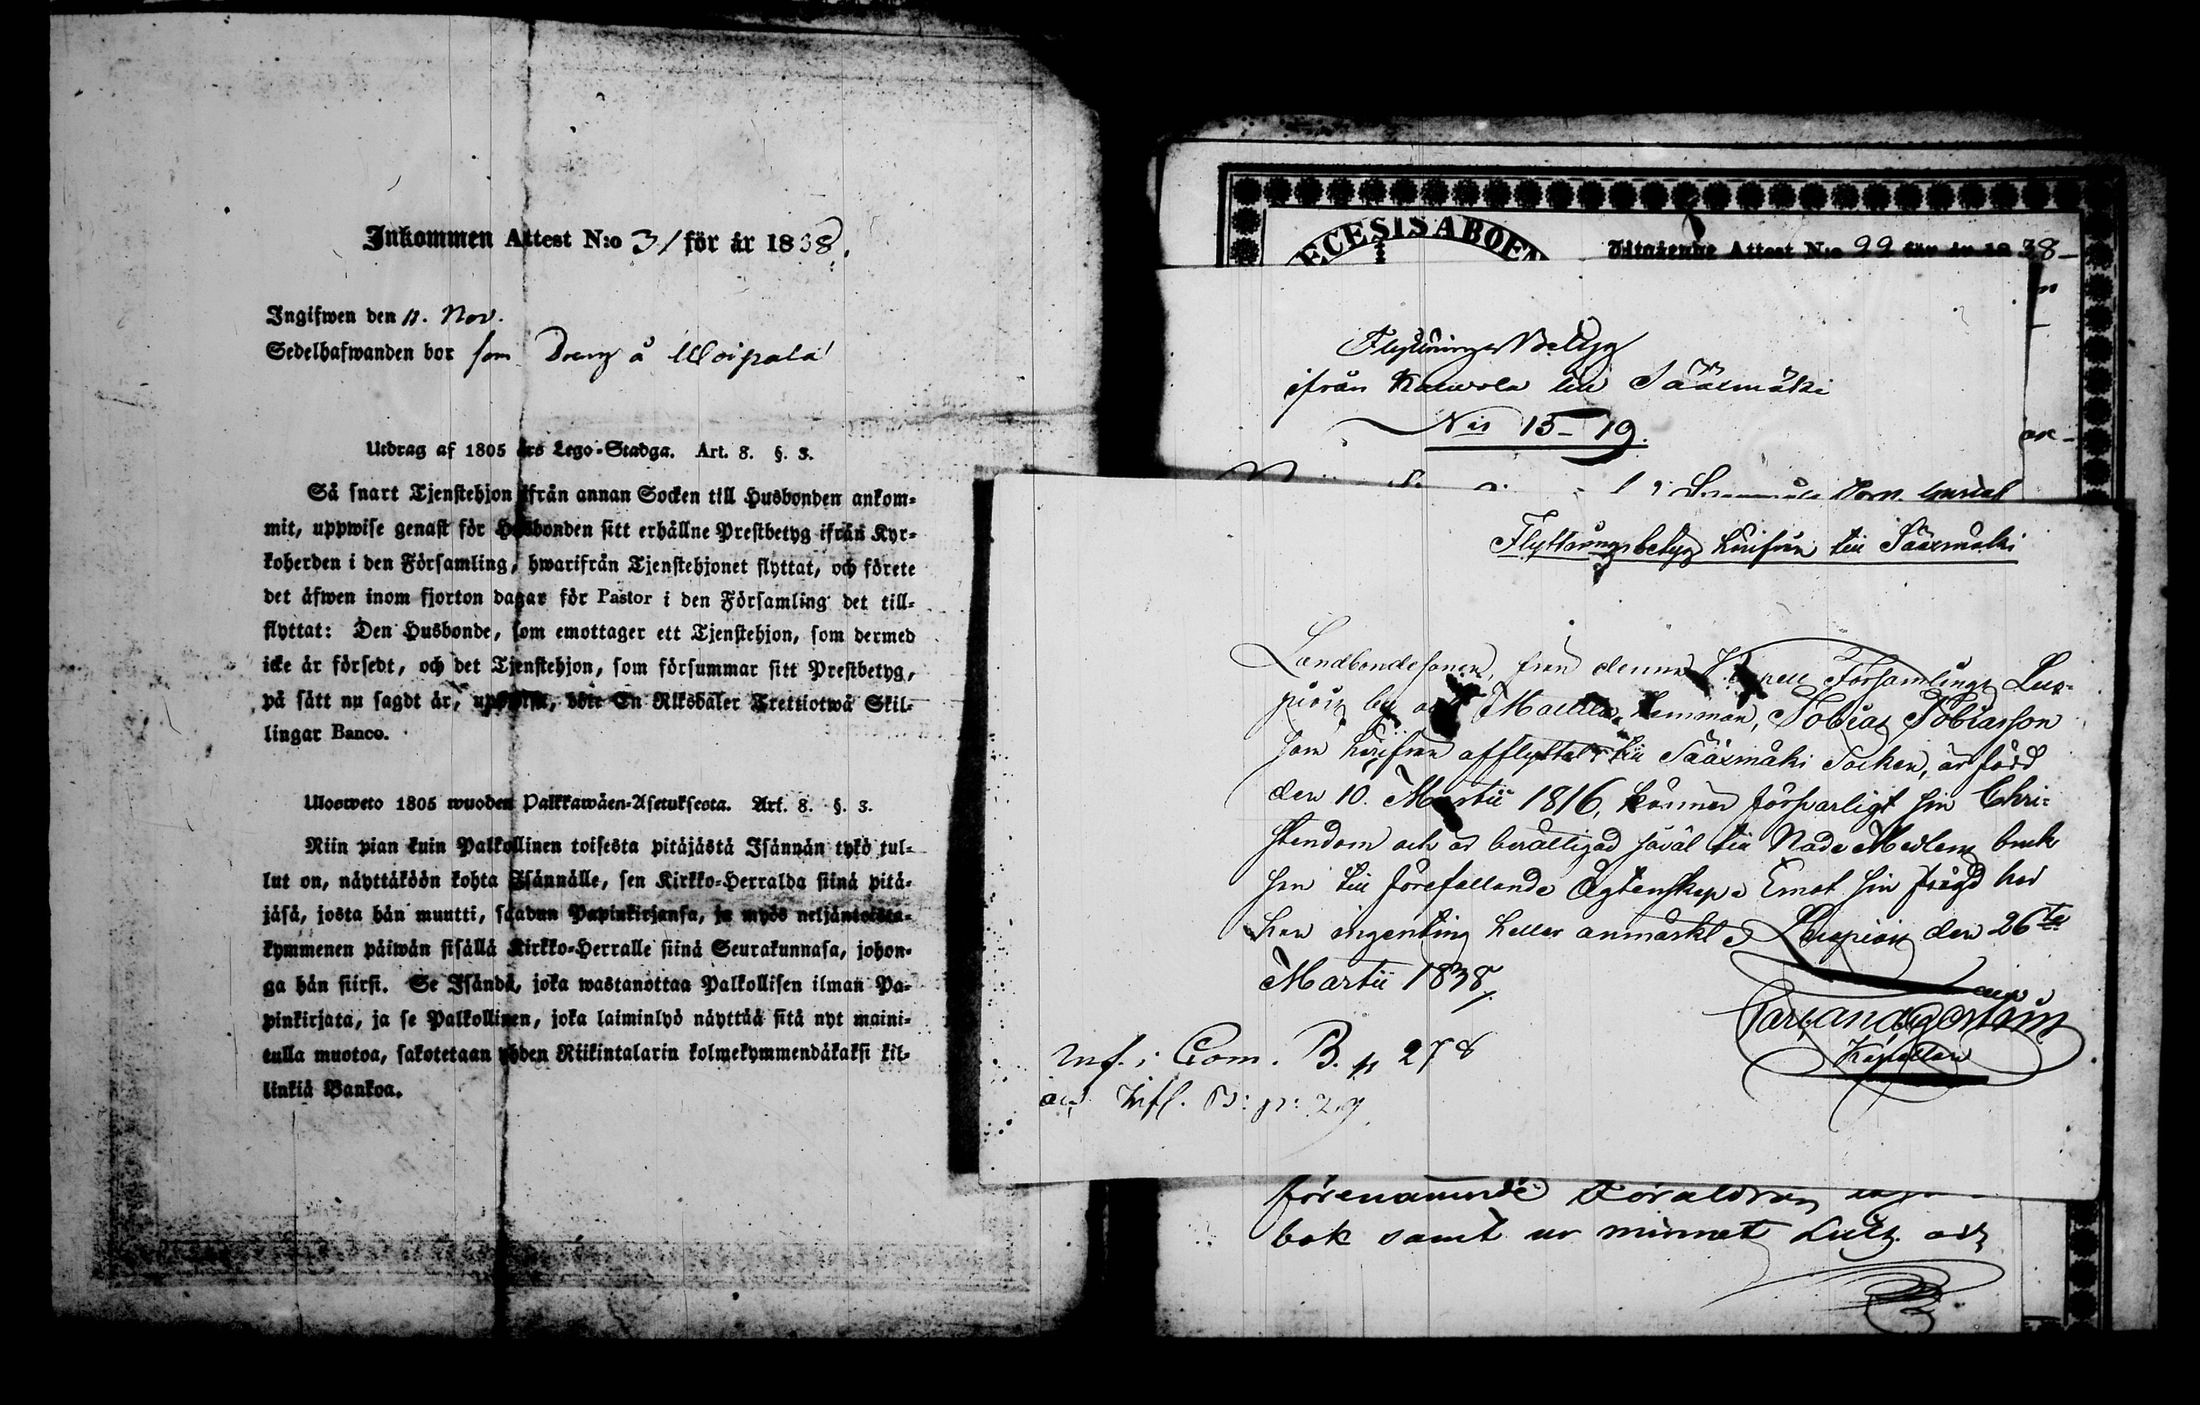 Inkommen Attest N:o 31 för år 1838.
Ingifwen den 11. Nov.
Sedelhafwanden bor som Dreng å Uoipala
Utdrag af 1805 års Lego-Stadga. Art. 8. §. 3.
Så snart Tjenstehjon ifrån annan Socken till Husbonden ankom-
mit, uppwise genast för Husbonden sitt erhållne Prestbetyg ifrån Kyr-
koherden i den Församling, hwarifrån Tjenstehjonet flyttat, och förete
det äfwen inom fjorton dagar för Pastor i den Församling det till-
flyttat: Den Husbonde, som emottager ett Tjenstehjon, som dermed
icke är försedt, och det Tjenstehjon, som försummar sitt Prestbetyg,
på sätt nu sagdt är, uppwisa, böte En Riksdaler Trettiotwå Skil-
lingar Banco.
Ulosweto 1805 wuoden Palkkawäen-Asetuksesta. Art. 8. §. 3.
Niin pian kuin Palkollinen toisesta pitäjästä Isännän tykö tul-
lut on, näyttäköön kohta Isännälle, sen Kirkko-Herralda siinä pitä-
jäsä, josta hän muutti, saadun Papinkirjansa, ja myös neljäntoista-
kymmenen päiwän sisällä Kirkko-Herralle siinä Seurakunnasa, johon-
ga hän siirsi. Se Isändä, joka wastanottaa Palkollisen ilman Pa-
pinkirjata, ja se Palkollinen, joka laiminlyö näyttää sitä nyt maini-
tulla muotoa, sakotetaan yhden Riikintalarin kolmekymmendäkaksi kil-
linkiä Bankoa.
ECESIS ABOEN
Utgående Attest N:o 22 för år 1838
Flyttnings Betyg
ifrån Kauvola till Sääxmäki
N:is 15-19.
Flyttningsbetyg härifrån till Sääxmäki
Landbondesonen, från denna Kapell Församlings Luo-
pioix by och Mattila hemman, Tobias Tobiasson
som härifrån afflyttar till Sääxmäki Socken, är född
den 10. Martii 1816, känner försvarligt sin Chri-
stendom och är berättigad såväl till Nade Medlens bruk
som till förefallande Ägtenskap. Emot hin frägd har
han ingenting heller anmärkt. Luopiois den 26te
Martii 1838.
Kapellan
Inf. i Com. B. p 278
Infl. B: p:
förenämnde Föräldrar
bok samt ur minnet Luth. och